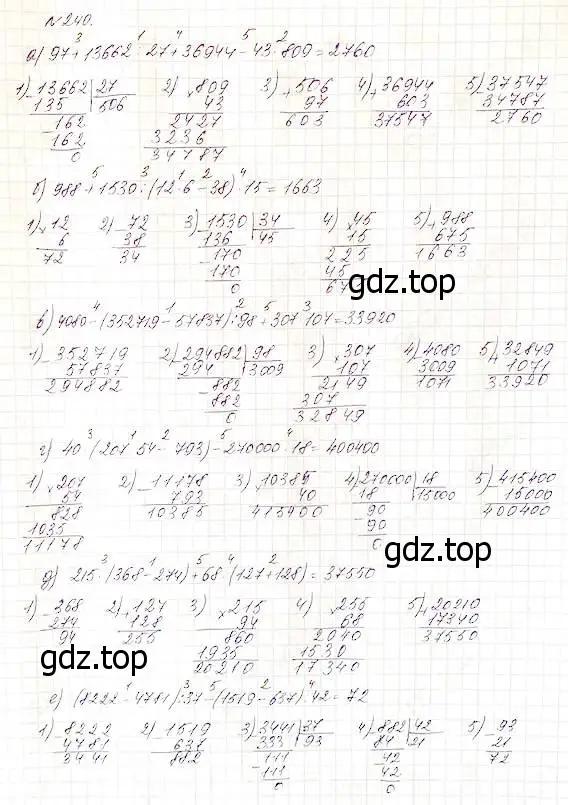 №240.
3 1 4 5 2
а) 97 + 13662 : 27 + 36944 - 43 · 809 = 2760
1) - 13662 | 27 2) × 809 3) + 506 4) + 36944 5) - 37547
135 | 506 43 97 603 34787
- 162 2427 603 37547 2760
162 3236
0 34787
5 3 1 2 4
б) 988 + 1530 : (12 · 6 - 38) · 15 = 1663
1) × 12 2) - 72 3) - 1530 | 34 4) × 45 5) + 988
6 38 136 | 45 15 675
72 34 - 170 225 1663
170 45
0 67
4 1 2 5 3
в) 4080 - (352719 - 57837) : 98 + 307 · 107 = 33920
1) - 352719 2) - 294882 | 98 3) × 307 4) - 4080 5) + 32849
57837 294 | 3009 107 3009 1071
294882 - 882 2149 1071 33920
882 307
0 32849
3 1 2 5 4
г) 40 · (207 · 54 - 793) - 270000 : 18 = 400400
1) × 207 2) - 11178 3) × 10385 4) - 270000 | 18 5) - 415400
54 793 40 18 | 15000 15000
828 10385 415400 - 90 400400
1035 90
11178 0
3 1 5 4 2
д) 215 · (368 - 274) + 68 · (127 + 128) = 37550
1) - 368 2) + 127 3) × 215 4) × 255 5) + 20210
274 128 94 68 17340
94 255 860 2040 37550
1935 1530
20210 17340
1 3 5 2 4
е) (8222 - 4781) : 37 - (1519 - 637) : 42 = 72
1) - 8222 2) - 1519 3) - 3441 | 37 4) - 882 | 42 5) - 93
4781 637 333 | 93 84 | 21 21
3441 882 - 111 - 42 72
111 42
0 0
gdz.top
gdz.top
gdz.top